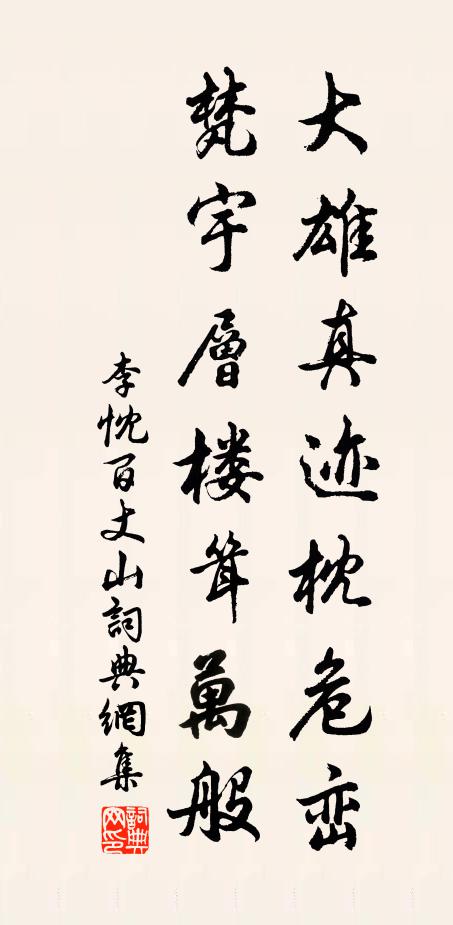 大雄真迹枕危峦
梵宇層楼耸萬般
李忱百丈山詞典網集
詞典網印